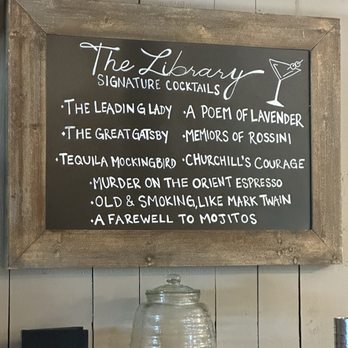 The Library
SIGNATURE COCKTAILS
•THE LEADING LADY •A POEM OF LAVENDER
•THE GREAT GATSBY •MEMIORS OF ROSSINI
•TEQUILA MOCKINGBIRD •CHURCHILL'S COURAGE
•MURDER ON THE ORIENT ESPRESSO
•OLD & SMOKING, LIKE MARK TWAIN
•A FAREWELL TO MOJITOS